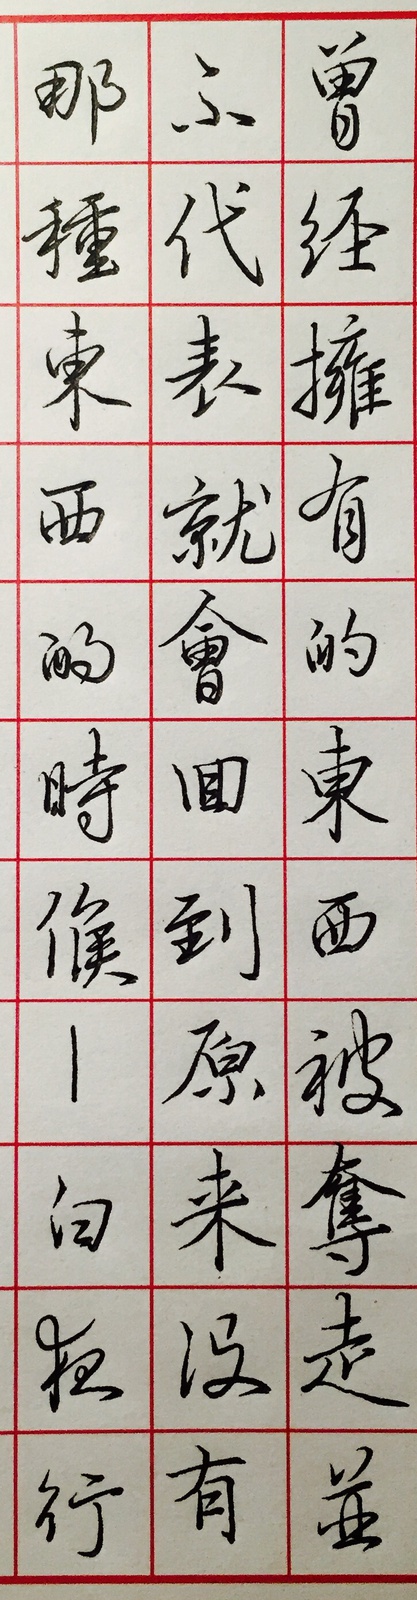 曾经擁有的東西被奪走並
不代表就會回到原来没有
那種東西的時候丨白夜行